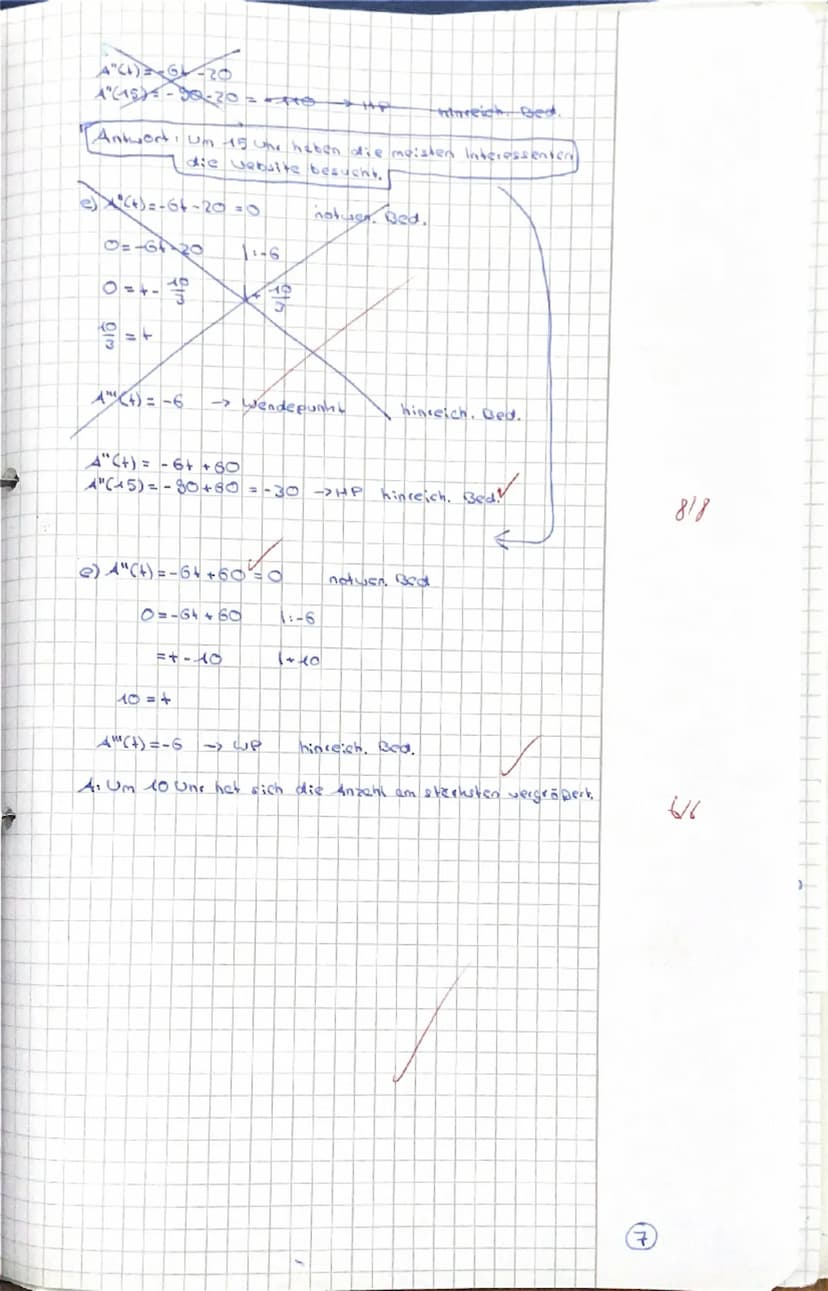 A''(t) = -6t -20
A''(15) = -90-20 = -110 → HP hinreich. Bed.
Antwort: Um 15 Uhr haben die meisten Interessenten
die Website besucht.
e) A''(t) = -6t -20 = 0 notwen. Bed.
0 = -6t -20 |:-6
0 = t - 10/3 |+ 10/3
10/3 = t
A'''(t) = -6 → Wendepunkt hinreich. Bed.
A''(t) = -6t +60
A''(15) = -90+60 = -30 → HP hinreich. Bed. ✓
8/8
e) A''(t) = -6t +60 = 0 notwen. Bed
0 = -6t +60 |:-6
= t -10 |+10
10 = t
A'''(t) = -6 → WP hinreich. Bed.
A: Um 10 Uhr hat sich die Anzahl am stärksten vergrößert.
6/6
7